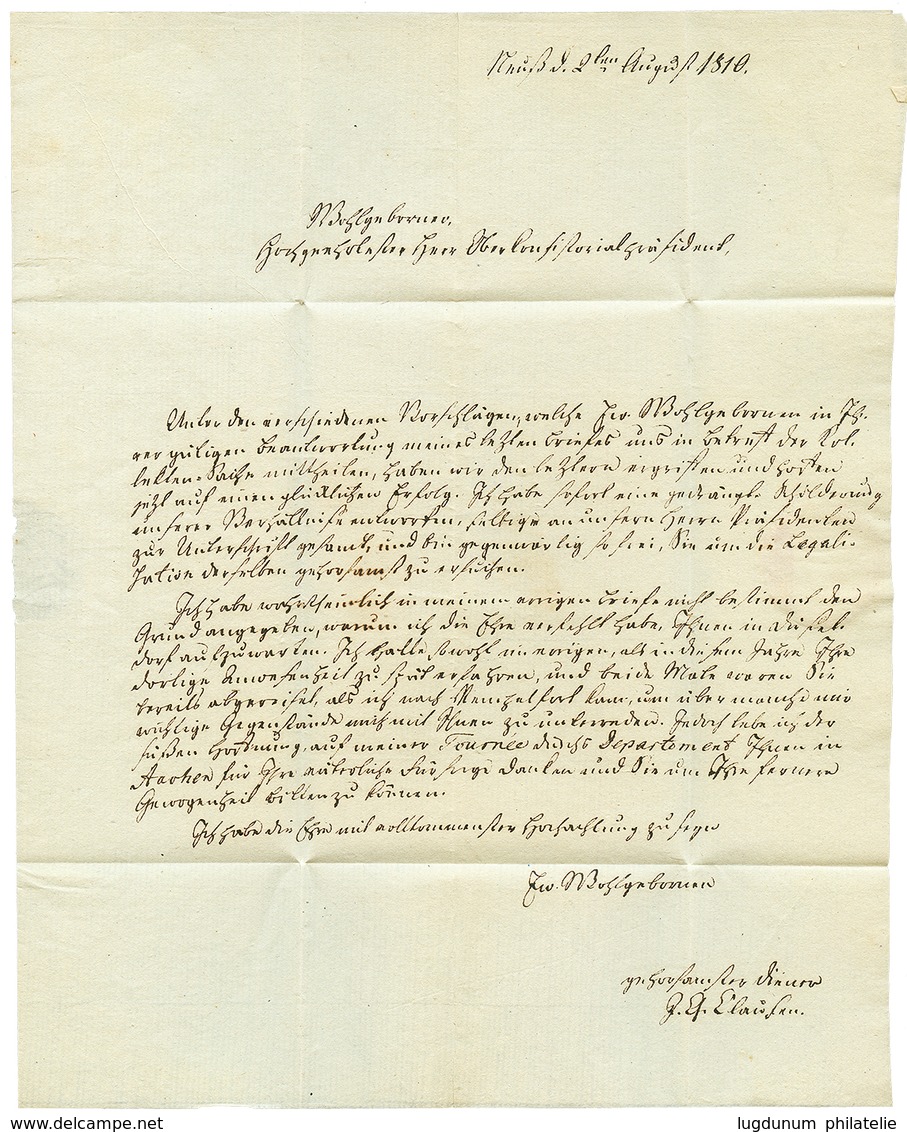 Neuß d. 2ten August 1810.
Wohlgeborner,
Hochgeehrtester Herr Oberkonsistorialpräsident,
Unter den verschiedenen Vorschlägen, welche Ew. Wohlgebornen in Ih-
rer gütigen Beantwortung meines letzten Briefes uns in Betreff der Kol-
lekten-Sache mittheilen, haben wir den letztern ergriffen und hoffen
jetzt auf einen glücklichen Erfolg. Ich habe sofort eine gedrängte Schilderung
unserer Verhältnisse entworfen, selbige an unsern Herrn Präsidenten
zur Unterschrift gesandt, und bin gegenwärtig so frei, Sie um die Legali-
sation derselben gehorsamst zu ersuchen.
Ich habe wahrscheinlich in meinem vorigen Briefe nicht bestimmt den
Grund angegeben, warum ich die Ehre verfehlt habe, Ihnen in Düssel-
dorf aufzuwarten. Ich hatte sowohl im vorigen, als in diesem Jahre Ihre
dortige Anwesenheit zu spät erfahren, und beide Male waren Sie
bereits abgereiset, als ich nach kam, um über manche mir
wichtige Gegenstände mich mit Ihnen zu unterreden. Jedoch lebe ich der
süßen Hoffnung, auf meiner Tournée durchs Departement Ihnen in
Aachen für Ihre väterliche Fürsorge danken und Sie um Ihre fernere
Gewogenheit bitten zu können.
Ich habe die Ehre mit vollkommenster Hochachtung zu seyn
Ew. Wohlgebornen
gehorsamster Diener
J. G. Clausen.
delcampe.net
lugdunum philatelie